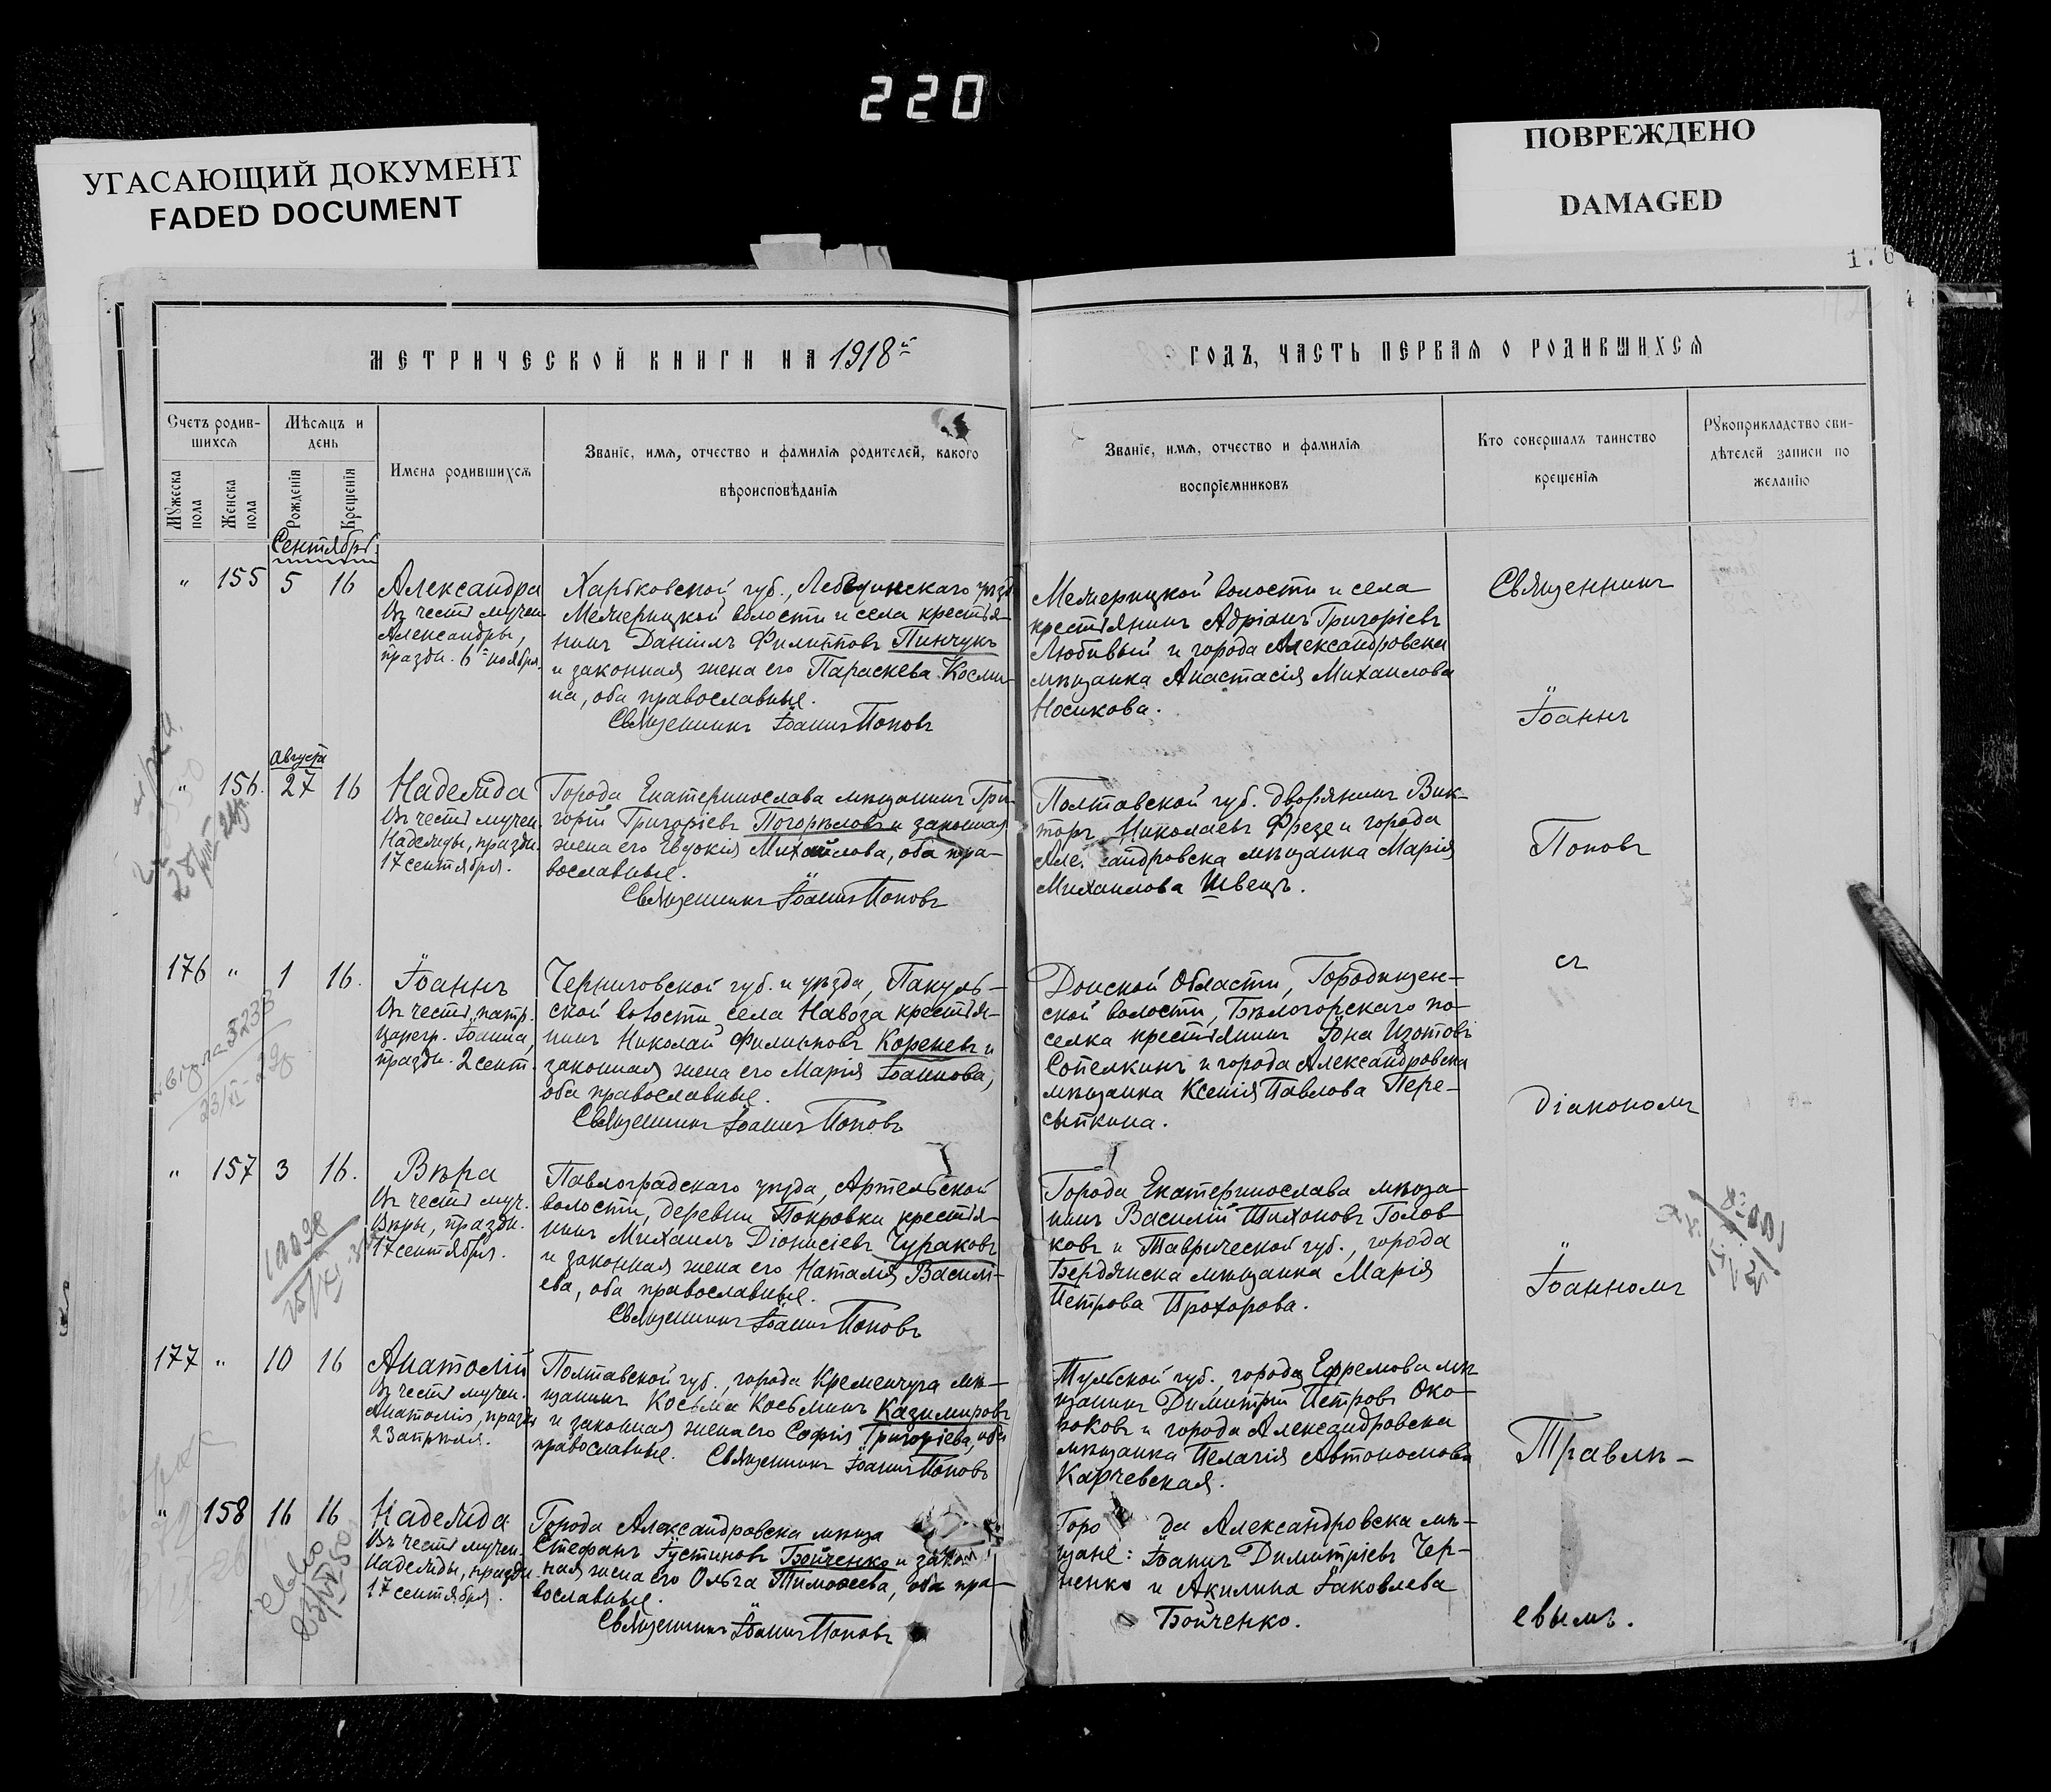 220
УГАСАЮЩИЙ ДОКУМЕНТ
FADED DOCUMENT
ПОВРЕЖДЕНО
DAMAGED
МЕТРИЧЕСКОЙ КНИГИ НА 1918й
ГОДЪ, ЧАСТЬ ПЕРВАЯ О РОДИВШИХСЯ
Счетъ родив-
шихся
Мужеска пола
Женска пола
Мѣсяцъ и
день
Рожденія
Крещенія
Имена родившихся
Званіе, имя, отчество и фамилія родителей, какого
вѣроисповѣданія
Званіе, имя, отчество и фамилія
воспріемниковъ
Кто совершалъ таинство
крещенія
Рукоприкладство сви-
дѣтелей записи по
желанію
Сентябрь
" 155 5 16
Александра
Въ честь мучен.
Александры,
празд. 6го ноября.
Харьковской губ., Лебединскаго уѣзда
Межерицкой волости и села крестья-
нинъ Даніилъ Филипповъ Пинчукъ
и законная жена его Параскева Косми-
на, оба православные.
Священникъ Іоаннъ Поповъ
Межерицкой волости и села
крестьянинъ Адріанъ Григорьевъ
Любивый и города Александровска
мѣщанка Анастасія Михаилова
Носикова.
Августа
" 156. 27 16
Надежда
Въ честь мучен.
Надежды, праздн.
17 сентября.
Города Екатеринослава мѣщанинъ Гри-
горій Григорьевъ Погорѣловъ и законная
жена его Евдокія Михайлова, оба пра-
вославные.
Священникъ Іоаннъ Поповъ
Полтавской губ. дворянинъ Вик-
торъ Николаевъ Фрезе и города
Александровска мѣщанка Марія
Михаилова Швецъ.
176 " 1 16.
Іоаннъ
Въ честь патр.
Царегр. Іоанна,
праздн. 2 сент.
Черниговской губ. и уѣзда, Пакуль-
ской волости села Навоза крестья-
нинъ Николай Филипповъ Кореневъ и
законная жена его Марія Іоаннова,
оба православные.
Священникъ Іоаннъ Поповъ
Донской Области, Городищен-
ской волости, Бѣлогорскаго по-
селка крестьянинъ Іона Изотовъ
Сопелкинъ и города Александровска
мѣщанка Ксенія Павлова Пере-
сыпкина.
" 157 3 16.
Вѣра
Въ честь муч.
Вѣры, праздн.
17 сентября.
Павлоградскаго уѣзда, Артельской
волости, деревни Покровки крестья-
нинъ Михаилъ Діонисіевъ Чураковъ
и законная жена его Наталія Василь-
ева, оба православные.
Священникъ Іоаннъ Поповъ
Города Екатеринослава мѣща-
нинъ Василій Тихоновъ Голов-
ковъ и Таврической губ., города
Бердянска мѣщанка Марія
Петрова Прохорова.
177 " 10 16
Анатолій
Въ честь мучен.
Анатолія, праздн.
23 апрѣля.
Полтавской губ., города Кременчуга мѣ-
щанинъ Косьма Косьминъ Казимировъ
и законная жена его Софія Григоріева, оба
православные. Священникъ Іоаннъ Поповъ
Тульской губ., города Ефремова мѣ-
щанинъ Димитрій Петровъ Око-
роковъ и города Александровска
мѣщанка Пелагія Автономова
Карчевская.
" 158 16 16
Надежда
Въ честь мучен.
Надежды, праздн.
17 сентября.
Города Александровска мѣща
Стефанъ Іустиновъ Бойченко и закон
ная жена его Ольга Тимоѳеева, оба пра-
вославные.
Священникъ Іоаннъ Поповъ
Города Александровска мѣ-
щане: Іоаннъ Димитріевъ Чер-
ненко и Акилина Іаковлева
Бойченко.
Священникъ
Іоаннъ
Поповъ
съ
діакономъ
Іоанномъ
Травлѣ-
евымъ.